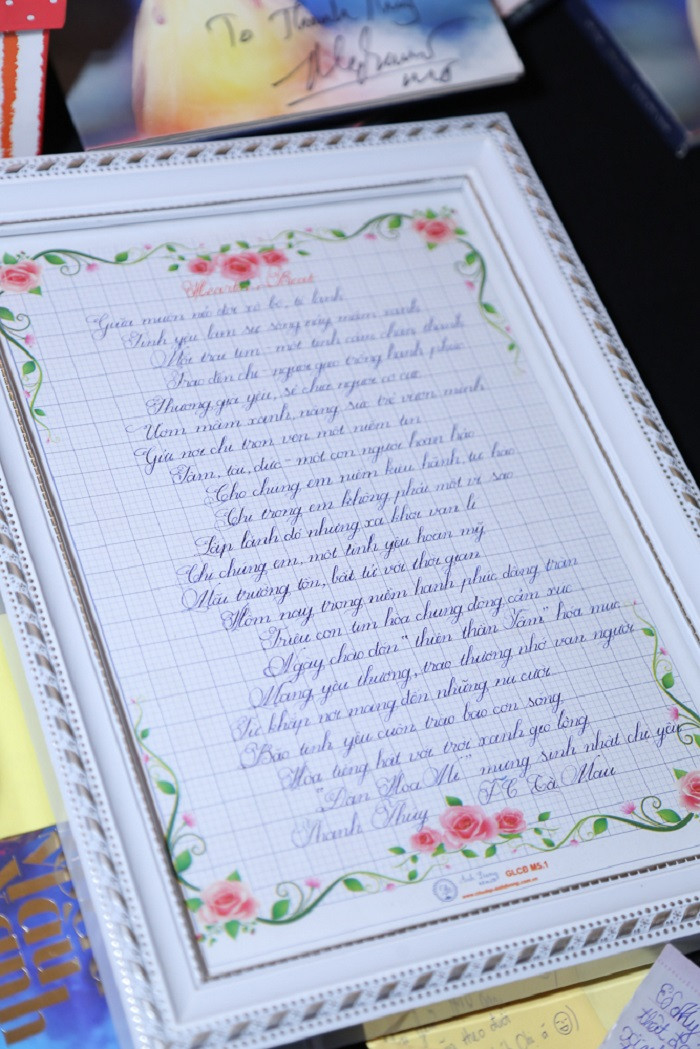 To Thanh
Heart Beat
Giữa muôn nẻo đời xô bồ, tị lanh
Tình yêu làm sự sống nảy mầm xanh
Một trái tim - một tình cảm chân thành
Trao đến chị người gieo trồng hạnh phúc
Thương, quý, yêu,
Ươm mầm xanh, năng sức trẻ vươn mình
Gửi nơi chị trọn vẹn một niềm tin
Tâm, tài, đức - một con người hoàn hảo
Cho chúng em niềm kiêu hãnh, tự hào
Chị trong em không phải một vì sao
Lấp lánh đó nhưng xa khơi vạn lí
Chị chúng em, một tình yêu hoàn mỹ
Mãi trường tồn, bất tử với thời gian
Hôm nay trong niềm hạnh phúc dâng tràn
Triệu con tim hòa chung dòng cảm xúc
Ngày chào đón "thiên thần Tâm" hòa mục
Mang yêu thương, trao thương nhớ vạn người
Từ khắp nơi mang đến những nụ cười
Bão tình yêu cuộn trào bao con sóng
Hòa tiếng hát với trời xanh gió lộng
"Đàn Họa Mi" mừng sinh nhật chị yêu
Thanh Thúy FC Cà Mau
GLCĐ MS:1
theo đuổi